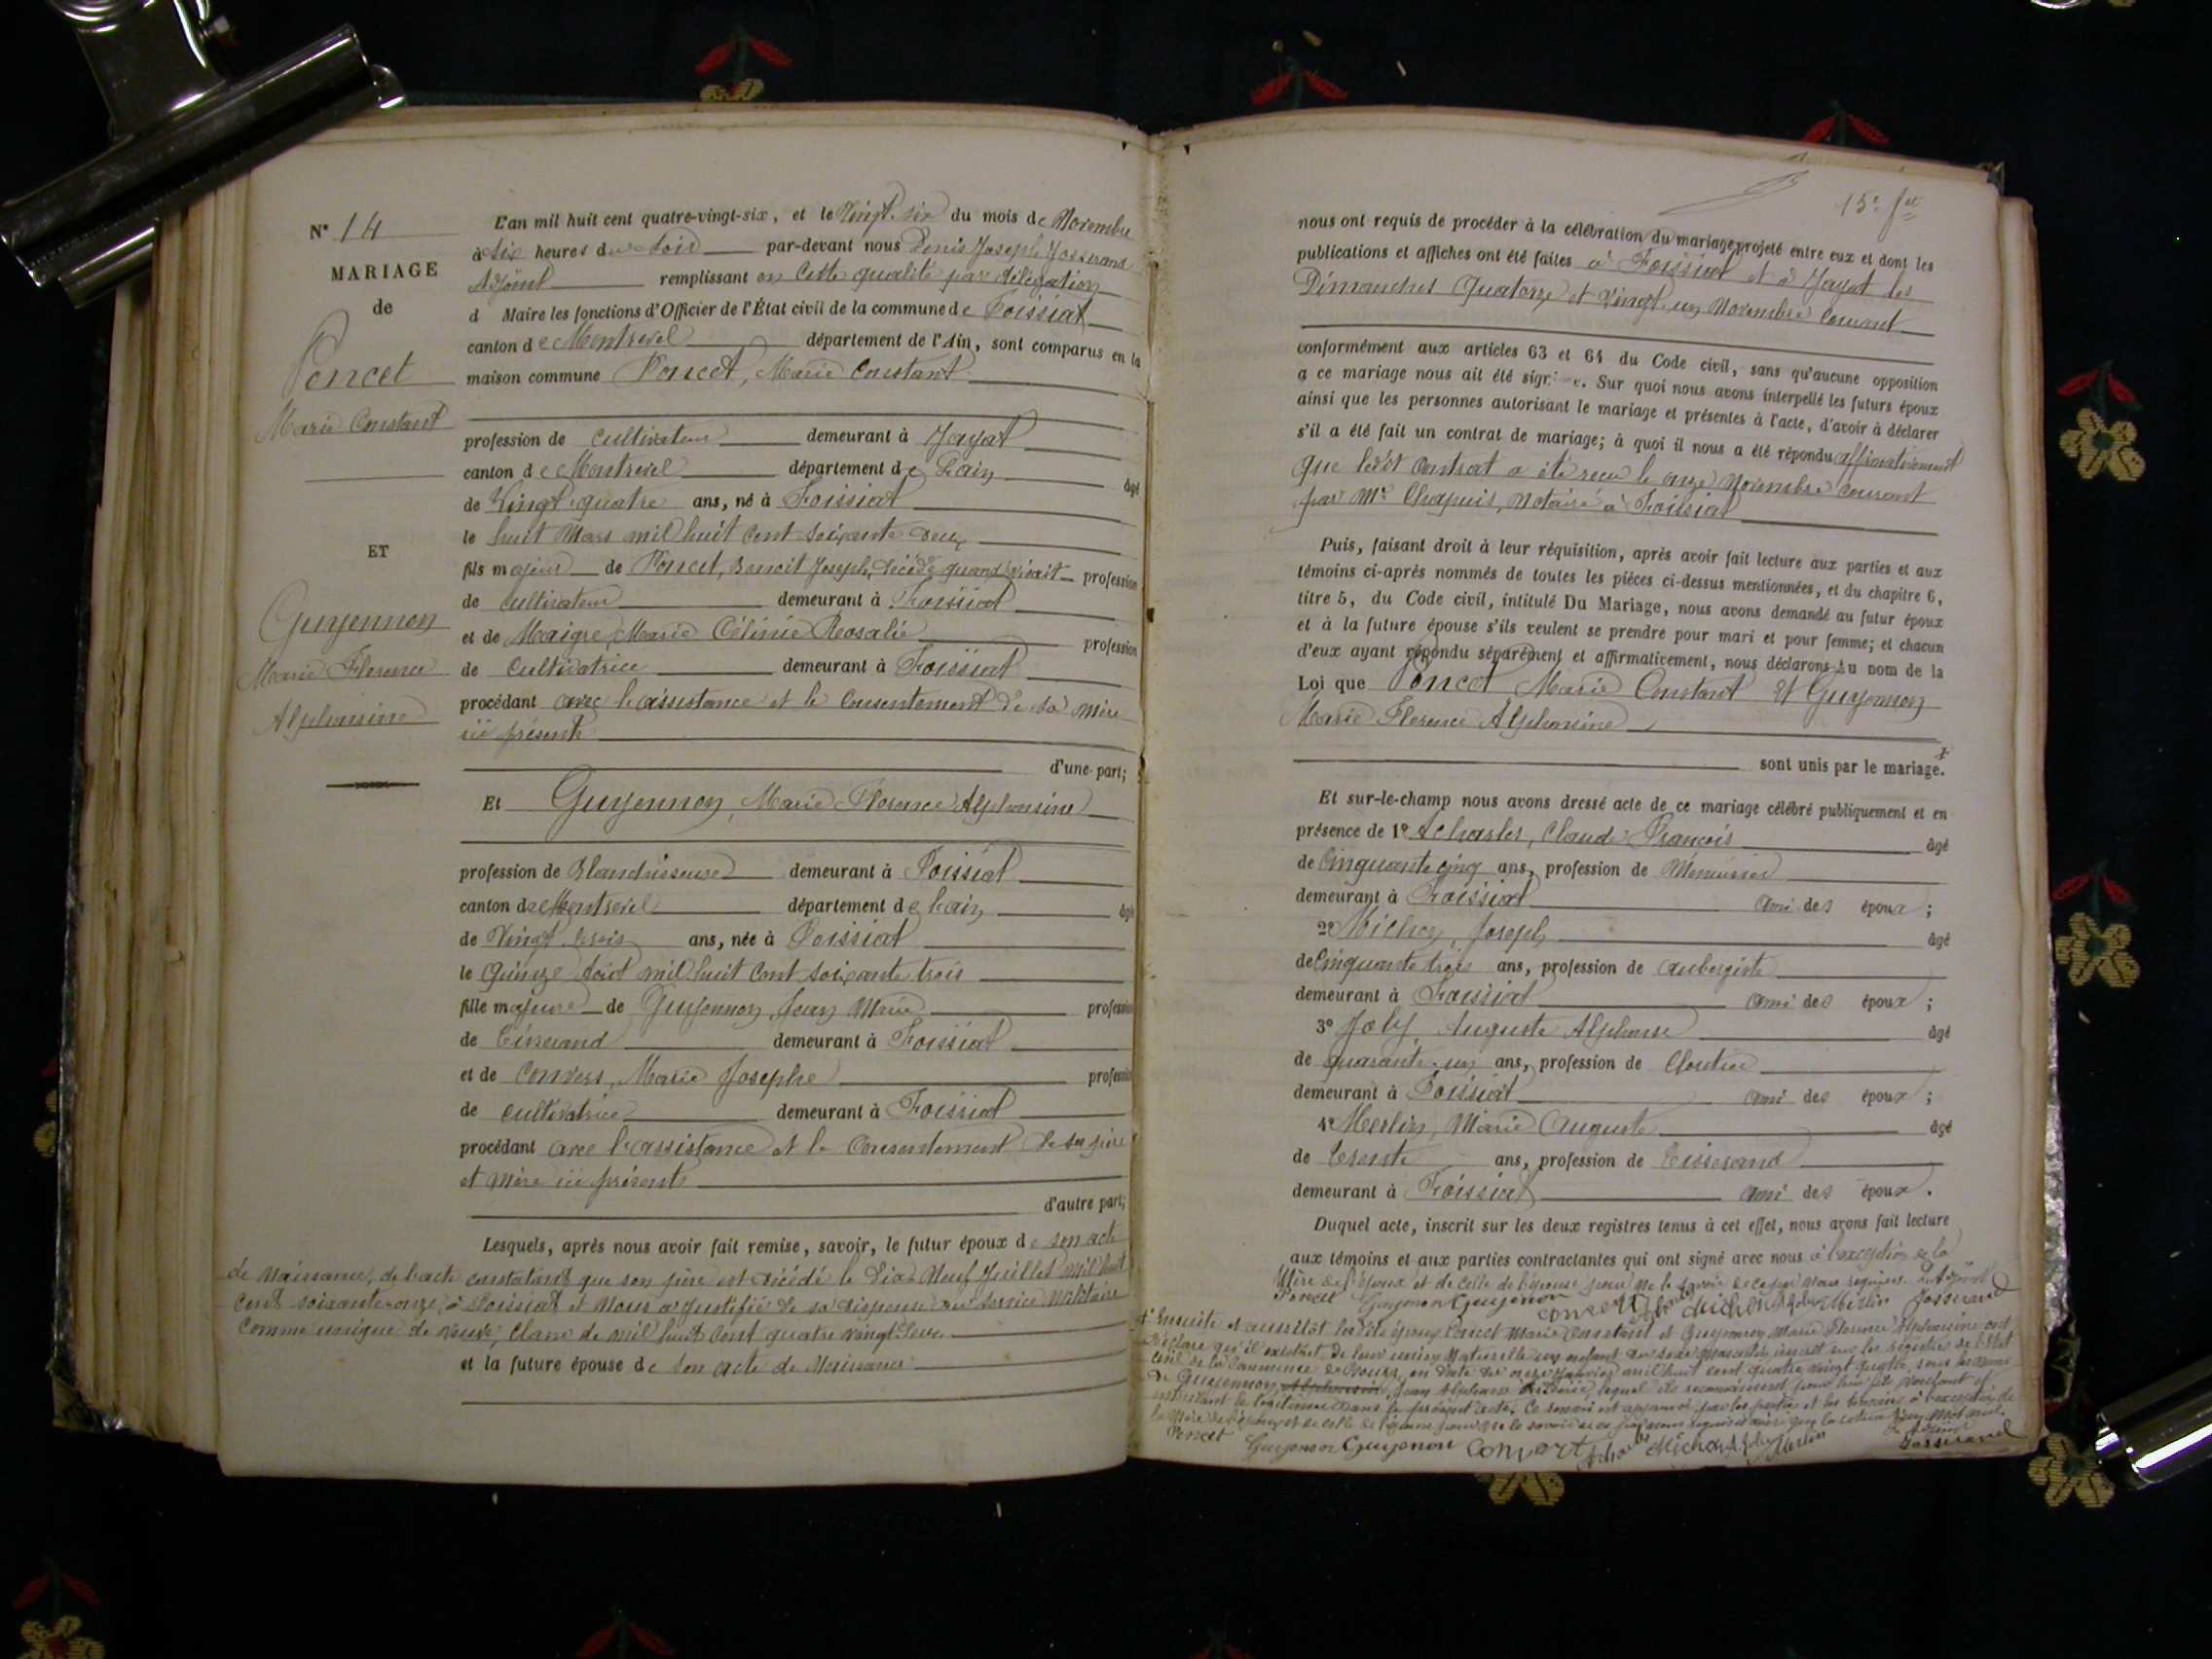 N° 14
MARIAGE
de
Poncet
Marie Constant
ET
Guyennon
Marie Florence
Alphonsine
L'an mil huit cent quatre-vingt-six, et le Vingt-six du mois de Novembre
à six heures du soir par-devant nous Denis Joseph Josserand
Adjoint remplissant en cette qualité par délégation
d Maire les fonctions d'Officier de l'État civil de la commune de Foissiat
canton de Montrevel département de l'Ain, sont comparus en la
maison commune Poncet, Marie Constant
profession de cultivateur demeurant à Jayat
canton de Montrevel département de L'ain âgé
de Vingt quatre ans, né à Foissiat
le huit Mars mil huit cent soixante deux
fils majeur de Poncet, Benoit Joseph, décédé quand vivait profession
de cultivateur demeurant à Foissiat
et de Maigre, Marie Célinie Rosalie profession
de Cultivatrice demeurant à Foissiat
procédant avec l'assistance et le consentement de sa mère
ici présente
d'une part;
Et Guyennon, Marie Florence Alphonsine
profession de Blanchisseuse demeurant à Foissiat
canton de Montrevel département de l'ain âgé
de Vingt trois ans, née à Foissiat
le Quinze Août mil huit cent soixante trois
fille majeure de Guyennon, Jean Marie profession
de Tisserand demeurant à Foissiat
et de Convers, Marie Josephe profession
de cultivatrice demeurant à Foissiat
procédant avec l'assistance et le consentement de ses père
et mère ici présents
d'autre part;
Lesquels, après nous avoir fait remise, savoir, le futur époux de son acte
de Naissance, de l'acte constatant que son père est décédé le Dix Neuf Juillet mil huit
cent soixante-onze, à Foissiat et Nous a justifié de sa dispense au service Militaire
comme unique de veuve, classe de mil huit cent quatre vingt deux
et la future épouse de son acte de Naissance
15e fet
nous ont requis de procéder à la célébration du mariage projeté entre eux et dont les
publications et affiches ont été faites à Foissiat et à Jayat les
Dimanches Quatorze et Vingt-un Novembre Courant
conformément aux articles 63 et 64 du Code civil, sans qu'aucune opposition
à ce mariage nous ait été signifiée. Sur quoi nous avons interpellé les futurs époux
ainsi que les personnes autorisant le mariage et présentes à l'acte, d'avoir à déclarer
s'il a été fait un contrat de mariage; à quoi il nous a été répondu affirmativement
que ledit Contrat a été reçu le onze Novembre courant
par Me Chapuis, Notaire à Foissiat
Puis, faisant droit à leur réquisition, après avoir fait lecture aux parties et aux
témoins ci-après nommés de toutes les pièces ci-dessus mentionnées, et du chapitre 6,
titre 5, du Code civil, intitulé Du Mariage, nous avons demandé au futur époux
et à la future épouse s'ils veulent se prendre pour mari et pour femme; et chacun
d'eux ayant répondu séparément et affirmativement, nous déclarons au nom de la
Loi que Poncet Marie Constant et Guyennon
Marie Florence Alphonsine
sont unis par le mariage.
Et sur-le-champ nous avons dressé acte de ce mariage célébré publiquement et en
présence de 1° Charles, Claude François âgé
de Cinquante cinq ans, profession de Menuisier
demeurant à Foissiat ami des époux;
2° Michon, Joseph âgé
de Cinquante trois ans, profession de aubergiste
demeurant à Foissiat ami des époux;
3° Joly, Auguste Alphonse âgé
de quarante-un ans, profession de Cloutier
demeurant à Foissiat ami des époux;
4° Merlin, Marie Auguste âgé
de trente ans, profession de Tisserand
demeurant à Foissiat ami des époux.
Duquel acte, inscrit sur les deux registres tenus à cet effet, nous avons fait lecture
aux témoins et aux parties contractantes qui ont signé avec nous à l'exception de la
Mère de l'époux et de celle de l'épouse pour ne le savoir de ce par nous requises. L'Adjoint
Poncet Guyenon Guyenon Convert Michon A Joly Merlin Josserand
Ensuite et aussitôt les dits époux Poncet Marie Constant et Guyennon Marie Florence Alphonsine ont
déclaré qu'il existait de leur union Naturelle un enfant du sexe Masculin inscrit sur les registres de l'état
civil de la Commune de Bourg, en date du onze Janvier mil huit cent quatre vingt quatre, sous les noms
de Guyennon, Jean Alphonse, lequel ils reconnaissent pour leur fils voulant et
entendant le légitimer dans le présent acte. Ce renvoi est approuvé par les parties et les témoins à l'exception de
la Mère de l'époux et de celle de l'épouse pour ne le savoir de ce par nous requises
Poncet Guyenon Guyenon Convert Michon A Joly Merlin L'Adjoint Josserand